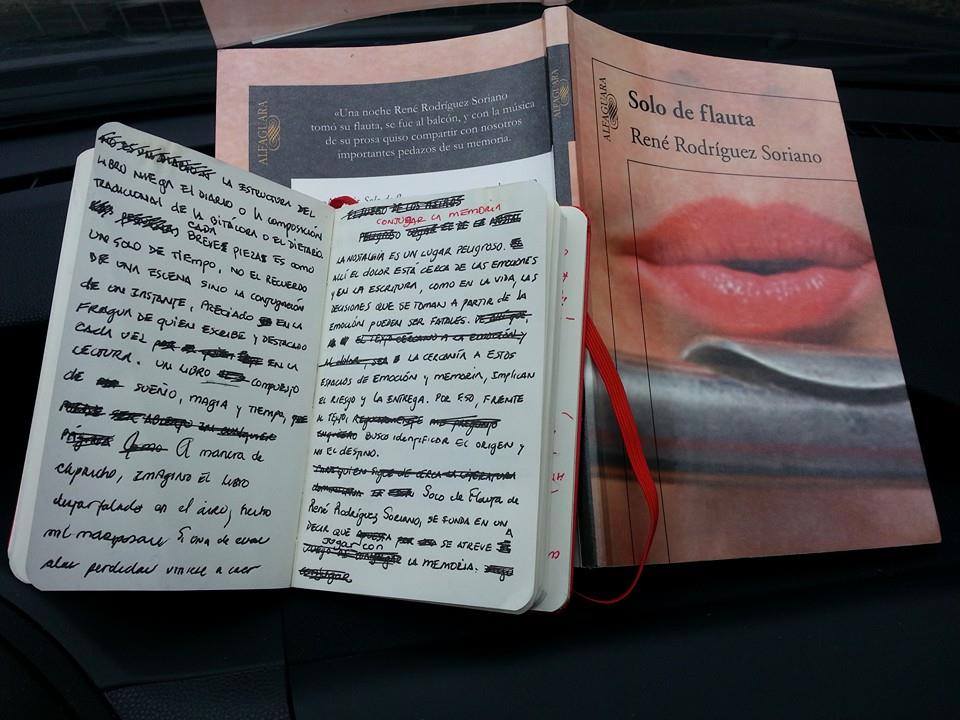 ALFAGUARA
«Una noche René Rodríguez Soriano
tomó su flauta, se fue al balcón, y con la música
de su prosa quiso compartir con nosotros
importantes pedazos de su memoria.
ALFAGUARA
ALFAGUARA
Solo de flauta
René Rodríguez Soriano
LA ESTRUCTURA DEL
LIBRO NIEGA EL DIARIO O LA COMPOSICIÓN
TRADICIONAL DE LA BITÁCORA O EL DIETARIO.
CADA
BREVES PIEZAS ES COMO
UN SOLO DE TIEMPO, NO EL RECUERDO
DE UNA ESCENA SINO LA CONJUGACIÓN
DE UN INSTANTE, APRECIADO EN LA
FRAGUA DE QUIEN ESCRIBE Y DESTACADO
CADA VEZ EN LA
LECTURA. UN LIBRO COMPUESTO
DE SUEÑO, MAGIA Y TIEMPO,
A MANERA DE
CAPRICHO, IMAGINO EL LIBRO
en el aire, hecho
mil mariposas
alas perdidas viniese a caer
CONJUGAR LA MEMORIA
LA NOSTALGIA ES UN LUGAR PELIGROSO.
ALLÍ EL DOLOR ESTÁ CERCA DE LAS EMOCIONES
Y EN LA ESCRITURA, COMO EN LA VIDA, LAS
DECISIONES QUE SE TOMAN A PARTIR DE LA
EMOCIÓN PUEDEN SER FATALES.
LA CERCANÍA A ESTOS
ESPACIOS DE EMOCIÓN Y MEMORIA, IMPLICAN
EL RIESGO Y LA ENTREGA. POR ESO, FRENTE
AL TEXTO,
BUSCO IDENTIFICAR EL ORIGEN Y
NO EL DESTINO.
SOLO DE FLAUTA DE
RENÉ RODRÍGUEZ SORIANO, SE FUNDA EN UN
DECIR QUE SE ATREVE A
JUGAR CON
LA MEMORIA.